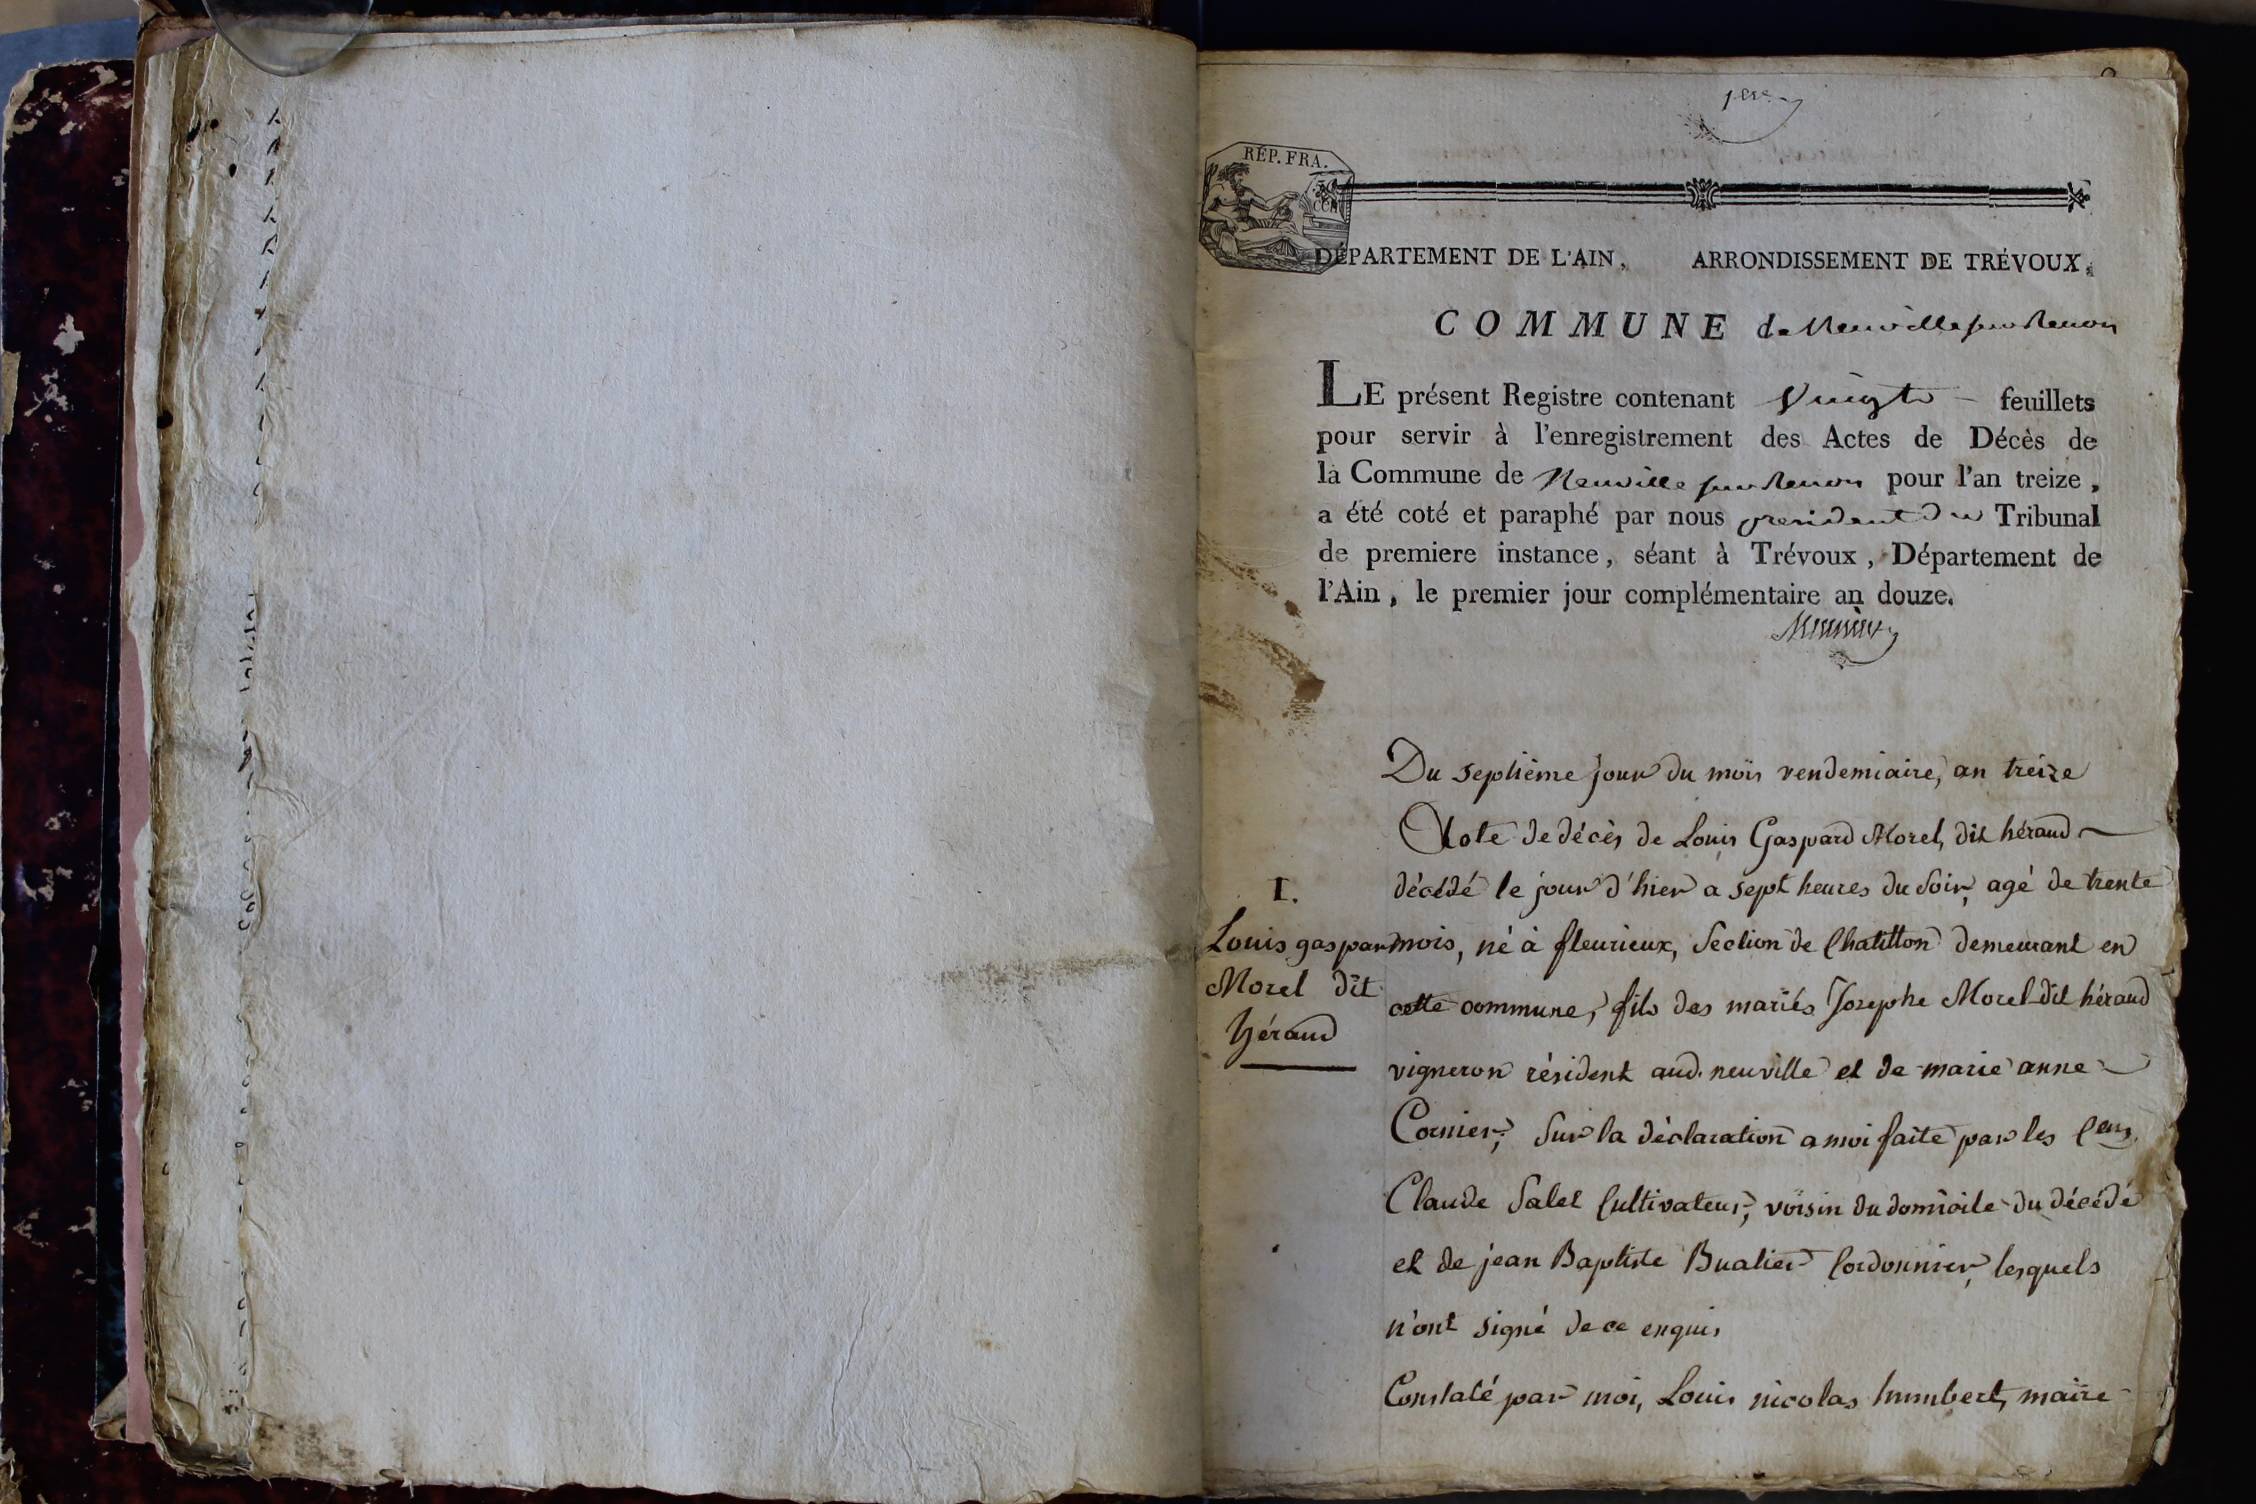 1ere
RÉP. FRA.
DÉPARTEMENT DE L'AIN, ARRONDISSEMENT DE TRÉVOUX,
COMMUNE de Neuville sur Renon
LE présent Registre contenant Vingt feuillets
pour servir à l'enregistrement des Actes de Décès de
la Commune de Neuville sur Renon pour l'an treize,
a été coté et paraphé par nous president du Tribunal
de premiere instance, séant à Trévoux, Département de
l'Ain, le premier jour complémentaire an douze.
Du septième jour du mois vendemiaire, an treize
Acte de décès de Louis Gaspard Morel, dit héraud
décédé le jour d'hier a sept heures du soir, agé de trente
mois, né à fleurieux, Section de Chatillon demeurant en
cette commune, fils des mariés Josephe Morel dit héraud
vigneron résident aud. neuville et de marie anne
Cornier; Sur la déclaration a moi faite par les Cens
Claude Salet Cultivateur, voisin du domicile du décédé
et de jean Baptiste Bualier Cordonnier, lesquels
n'ont signé de ce enquis
Constaté par moi, Louis nicolas humbert, maire
I.
Louis gaspard
Morel dit
héraud